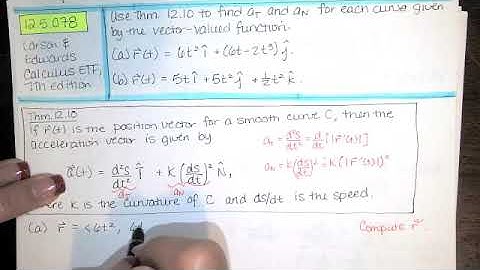 12.5.078
Larson &
Edwards
Calculus ETF,
7th edition
Use Thm. 12.10 to find a_T and a_N for each curve given
by the vector-valued function.
(a) r⃗(t) = 6t² î + (6t-2t³) ĵ.
(b) r⃗(t) = 5t î + 5t² ĵ + ½t² k̂.
Thm. 12.10
If r⃗(t) is the position vector for a smooth curve C, then the
acceleration vector is given by
a⃗(t) = d²s/dt² T̂ + K(ds/dt)² N̂,
a_T a_N
a_T = d²s/dt² = d/dt [|r⃗'(t)|]
a_N = K(ds/dt)² = K(|r⃗'(t)|)²
ere K is the curvature of C and ds/dt is the speed.
(a) r⃗ = <6t²,
Compute